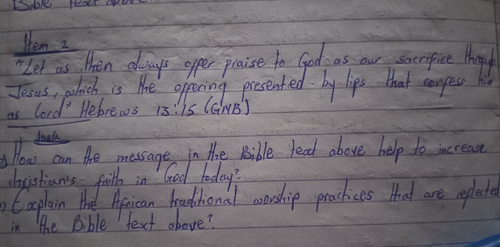 Bible text above
Item 2
"Let as then always offer praise to God as our sacrifice through
Jesus, which is the offering presented by lips that confess him
as Lord" Hebrews 13:15 (GNB)
task
a) How can the message in the Bible text above help to increase
christian's faith in God today?
b) Explain the African traditional worship practices that are reflected
in the Bible text above?